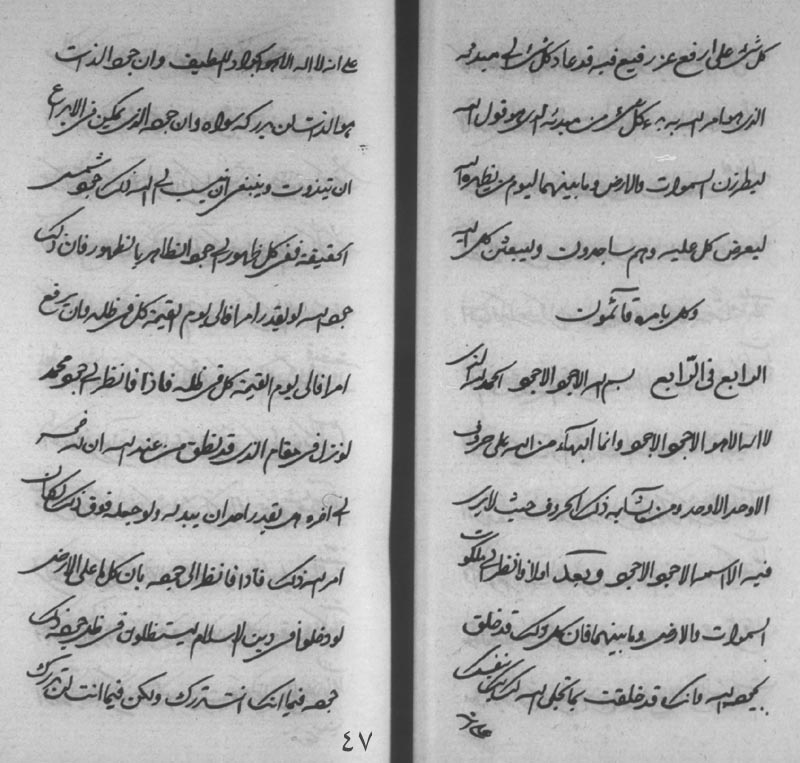 كل شئ على ارفع عز رفيع فيه قد عاد كل شئ الى مبدئه
الذى هو امر الله به بدء كل شئ من مبدئه الذى هو قول الله
ليطرزن السموات والارض وما بينهما ليوم من نظهره الله
ليعرض كل عليه وهم ساجدون وليبعثن كل الله
وكل بامره قائمون
الرابع فى الرابع بسم الله الاجود الاجود الحمد لله الذى
لا اله الا هو الاجود الاجود وانما البهاء من الله على حروف
الاوحد الاوحد ومن شابه ذلك الحروف حيث لا يرى
فيه الا اسمه الاجود الاجود وبعد اولا فانظر الى ملكوت
السموات والارض وما بينهما فان كل ذلك قد خلق
بجود الله وانك قد خلقت بما تجلى الله لك بك بنفسك
على انه لا اله الا هو الجواد اللطيف وان جود الذات
هو الذى لن يدركه سواه وان جود الذى يمكن فى الابداع
ان تيذوت وينبغى ان ينسب الى الله ذلك جود شمس
الحقيقة ففى كل ظهور الى جود الظاهر بالظهور فان ذلك
جود الله لو يقدر امرا فالى يوم القيمة كل فى ظله وان يرفع
امرا فالى يوم القيمة كل فى ظله فاذا فانظر الى جود محمد
لو نزل فى مقام الذى قد نطق من عند الله ان لله خمسه
الى اخره هل يقدر احد ان يبدله ولو جعله فوق ذلك لكان
امر الله ذلك فاذا فانظر الى جوده بان كل ما على الارض
لو دخلوا فى دين الاسلام ليستظلون فى ظل جوده ذلك
جوده فيما انك انت تدرك ولكن فيما انت لن تدرك
٤٧